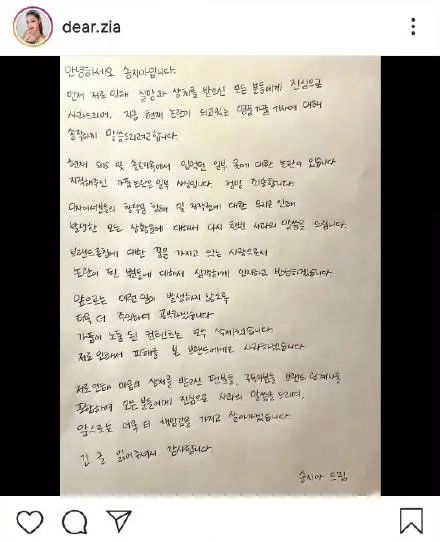 dear.zia
안녕하세요 송지아입니다.
먼저 저로 인해 실망과 상처를 받으신 모든 분들에게 진심으로
사과드리며, 지금 현재 논란이 되고있는 명품가품 기사에 대해
솔직하게 말씀드리려고합니다.
현재 SNS 및 솔로지옥에서 입었던 일부 옷에 대한 논란이 있습니다
지적해주신 가품논란은 일부 사실입니다. 정말 죄송합니다.
디자이너분들의 창작물 침해 및 저작권에 대한 무지로 인해
발생한 모든 상황들에 대해서 다시 한번 사과의 말씀을 드립니다.
브랜드론칭에 대한 꿈을 가지고 있는 사람으로서
논란이 된 부분들에 대해서 심각하게 인지하고 반성하겠습니다.
앞으로는 이런 일이 발생하지 않도록
더욱 더 주의하며 공부하겠습니다
가품이 노출 된 컨텐츠는 모두 삭제하였습니다
저로 인해서 피해를 본 브랜드에게도 사과하겠습니다
저로인해 마음의 상처를 받으신 팬분들, 구독자분들 브랜드 관계자를
포함하여 모든 분들에게 진심으로 사과의 말씀을 드리며,
앞으로는 더욱 더 책임감을 가지고 살아가겠습니다.
긴 글 읽어주셔서 감사합니다.
송지아 드림